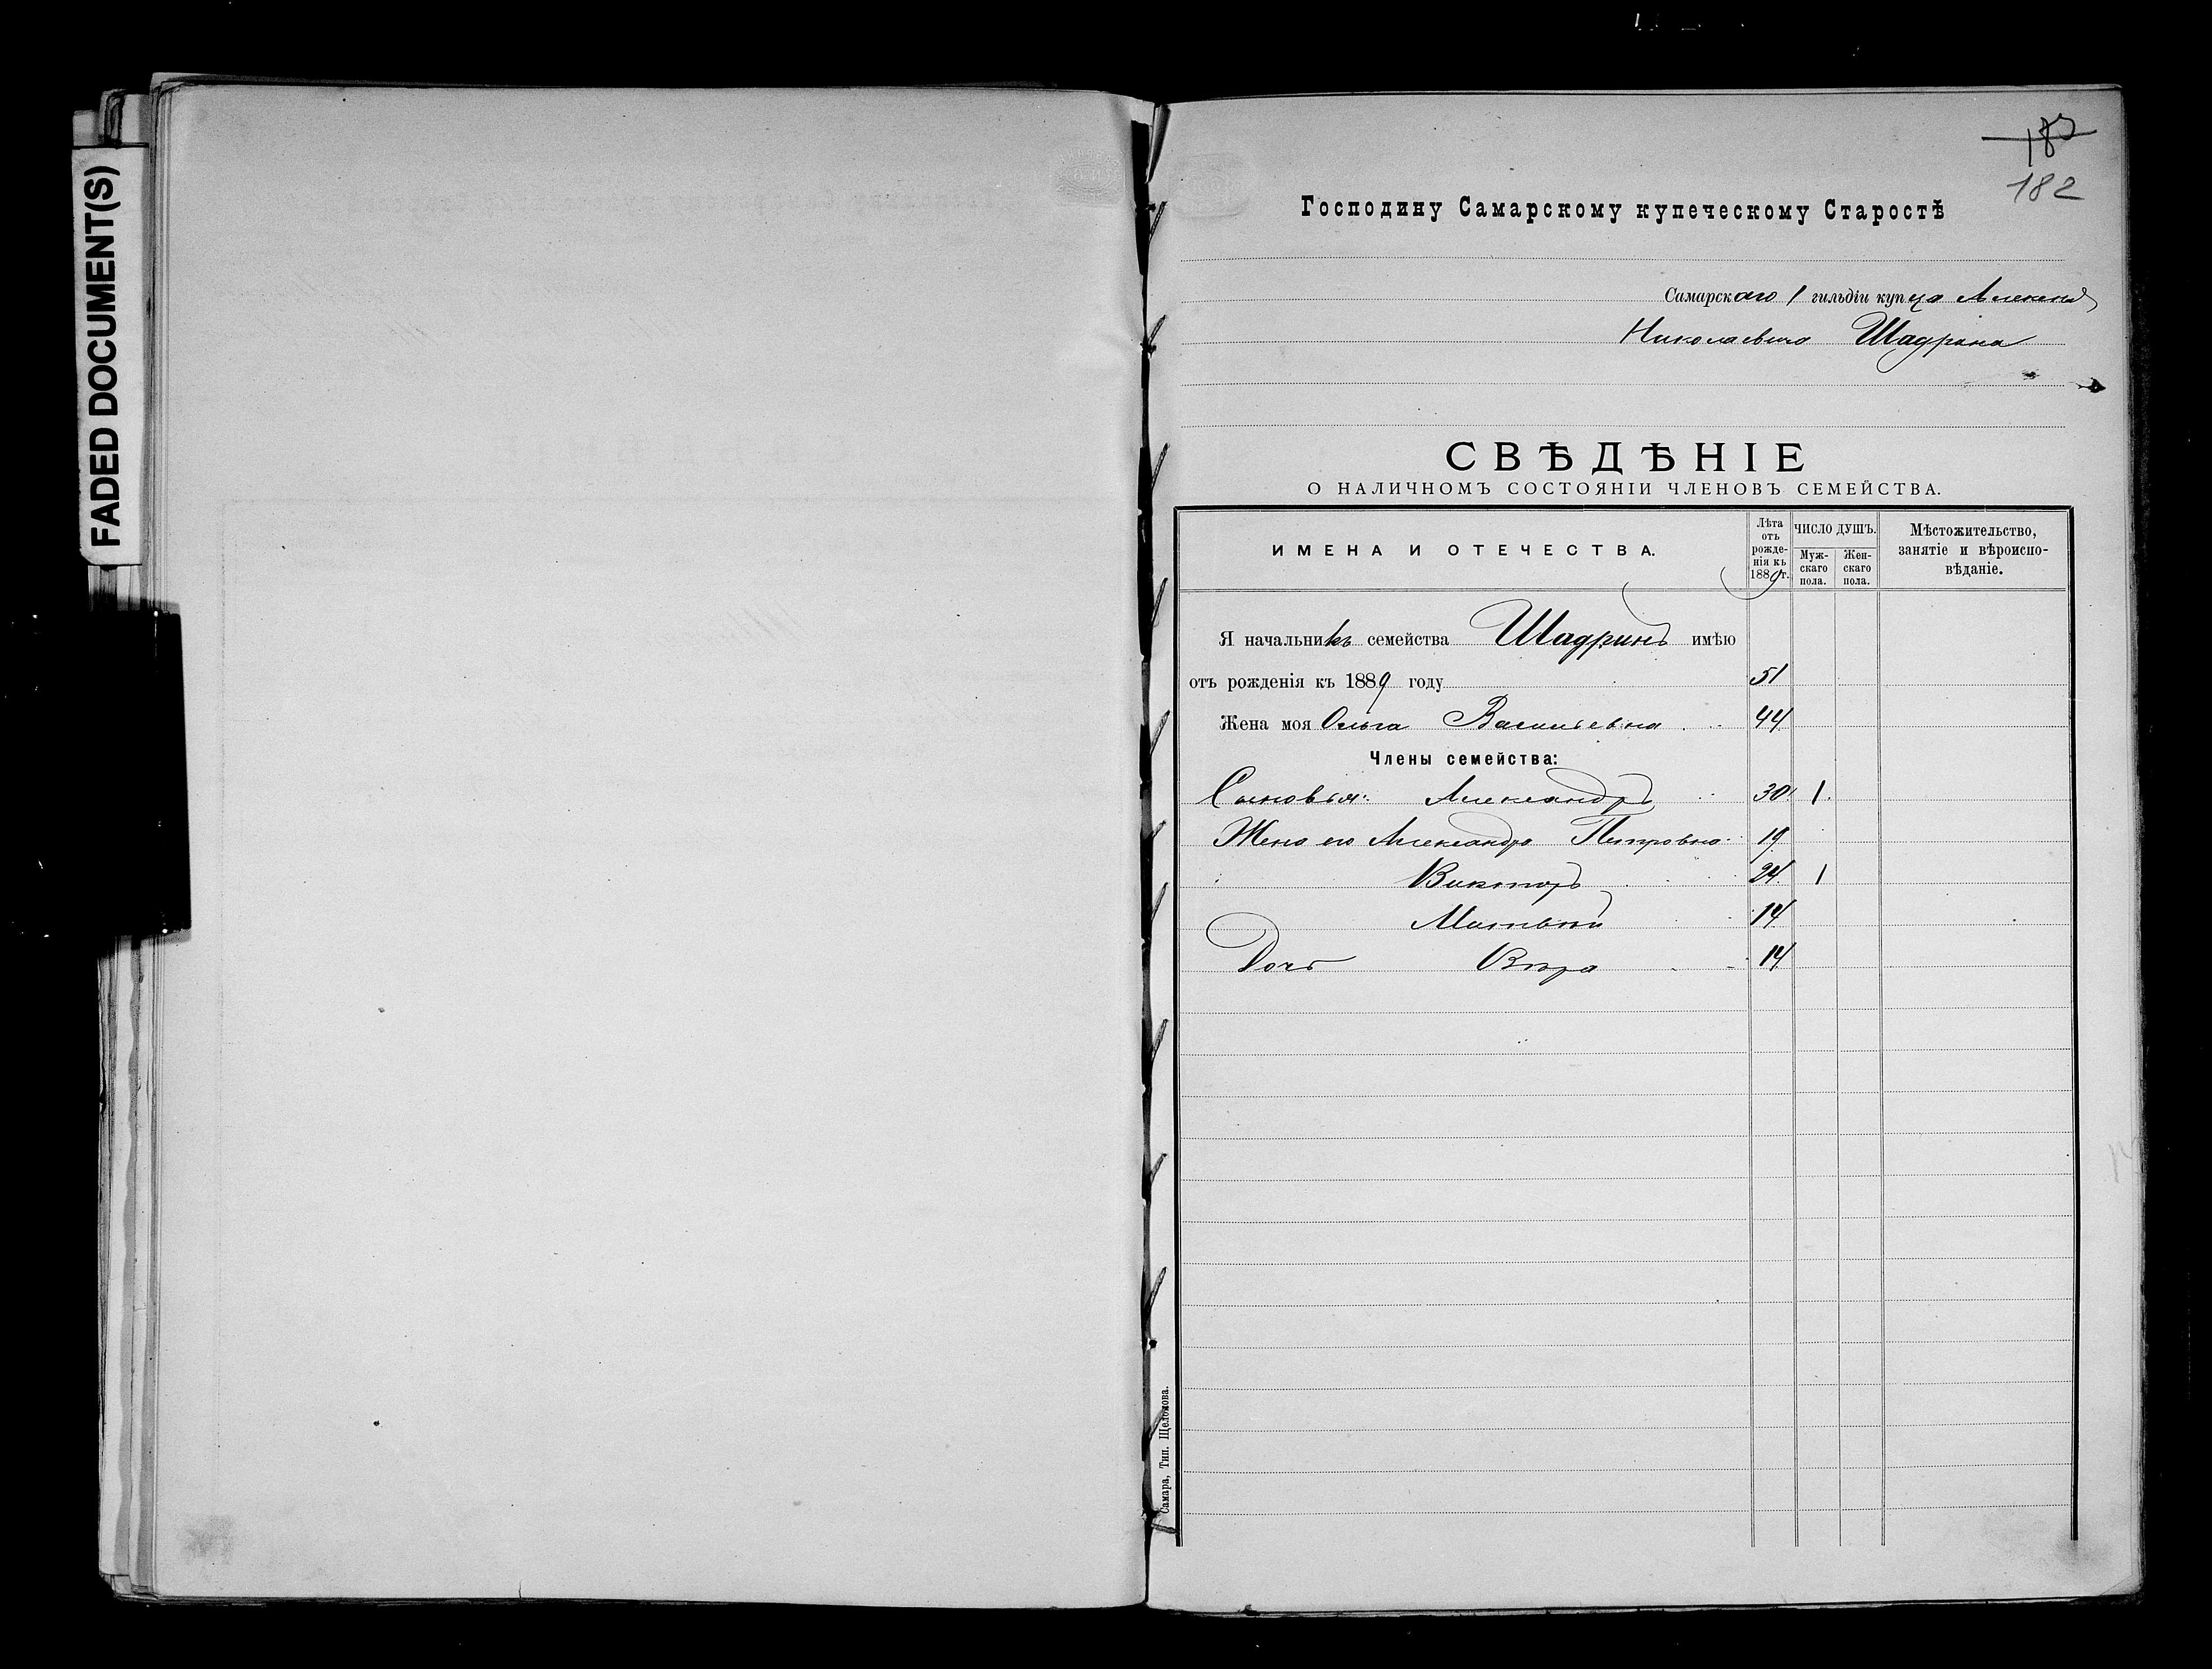 FADED DOCUMENT(S)
183
182
Господину Самарскому купеческому Старостѣ
Самарскаго 1 гильдіи купца Алексѣя
Николаевича Шадрина
СВѢДѢНІЕ
О НАЛИЧНОМЪ СОСТОЯНІИ ЧЛЕНОВЪ СЕМЕЙСТВА.
ИМЕНА И ОТЕЧЕСТВА.
Лѣта отъ рожде-нія къ 1889 г.
ЧИСЛО ДУШЪ.
Муж-скаго пола.
Жен-скаго пола.
Мѣстожительство, занятіе и вѣроиспо-вѣданіе.
Я начальникъ семейства Шадринъ имѣю
отъ рожденія къ 1889 году 51
Жена моя Ольга Васильевна 44
Члены семейства:
Сыновья: Александръ 30 1
Жена его Александра Петровна 19
Викторъ 24 1
Матвѣй 14
Дочь Вѣра 14
Самара, Тип. Щелокова.